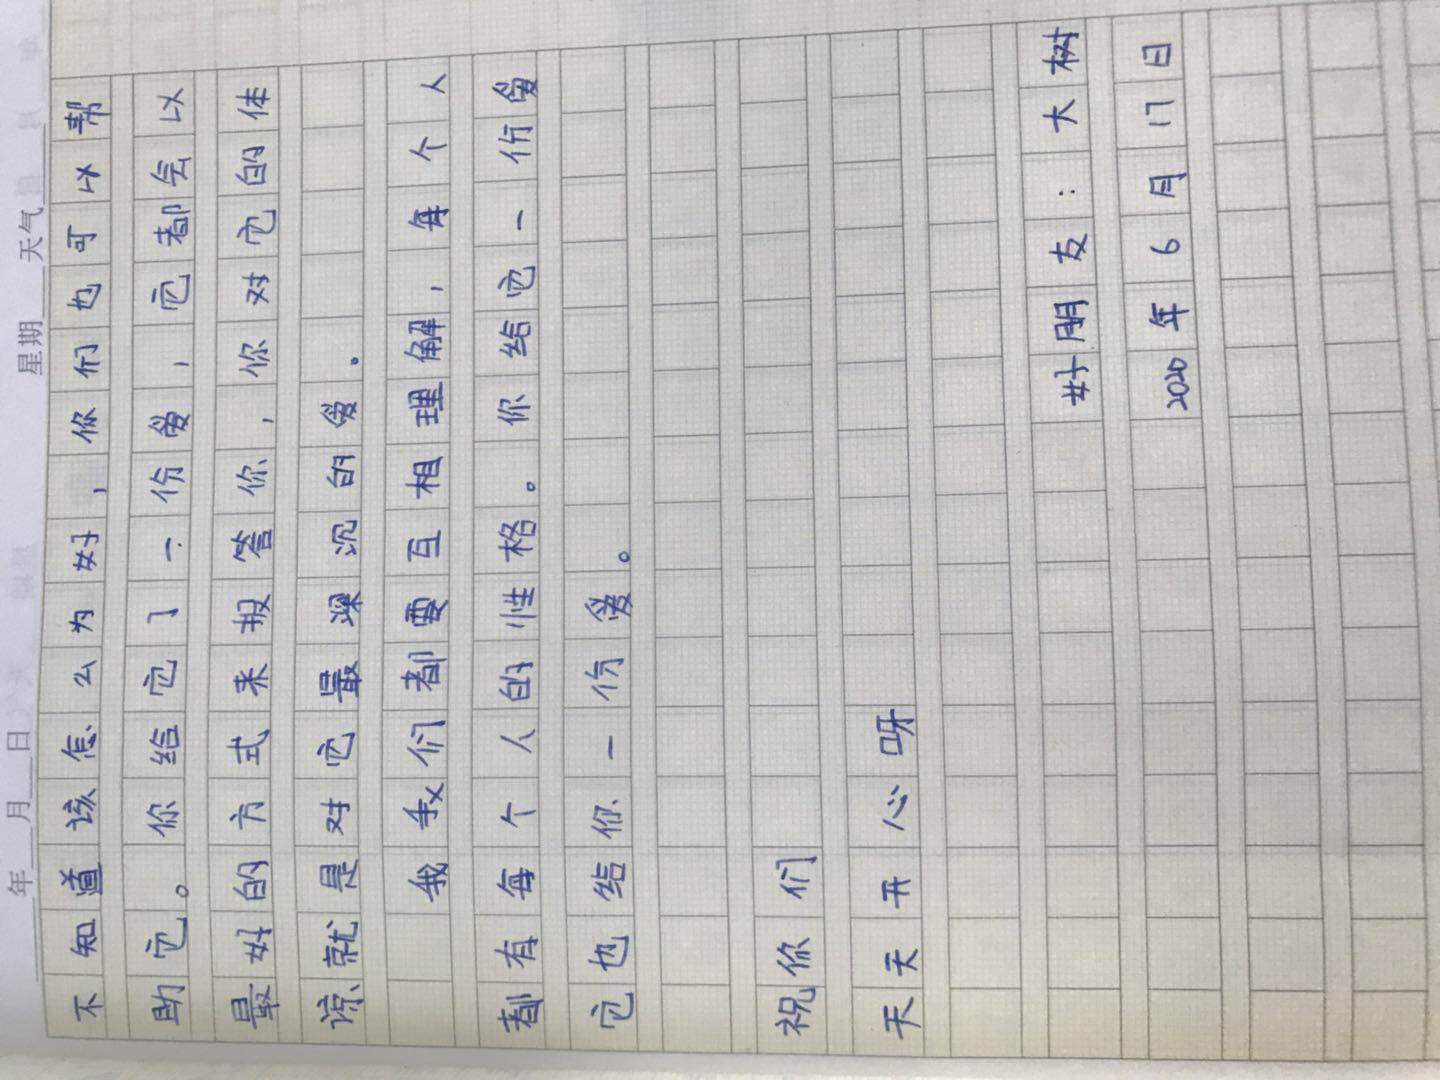 年 月 日 星期 天气
不知道该怎么为好，你们也可以帮
助它。你给它了一份爱，它都会以
最好的方式来报答你，你对它的体
谅就是对它最深沉的爱。
我我们都要互相理解，每个人
都有每个人的性格。你给它一份爱
它也给你一份爱。
祝你们
天天开心呀
好朋友：大树
2020年6月17日